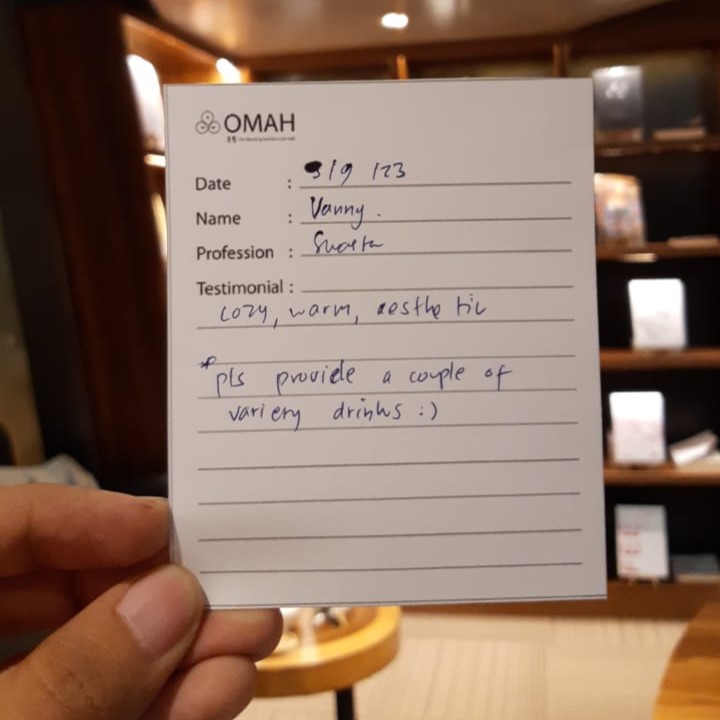 OMAH
Date : 3/9 /23
Name : Vanny.
Profession :
Testimonial :
cozy, warm, aesthetic
*pls provide a couple of
variery drinks :)